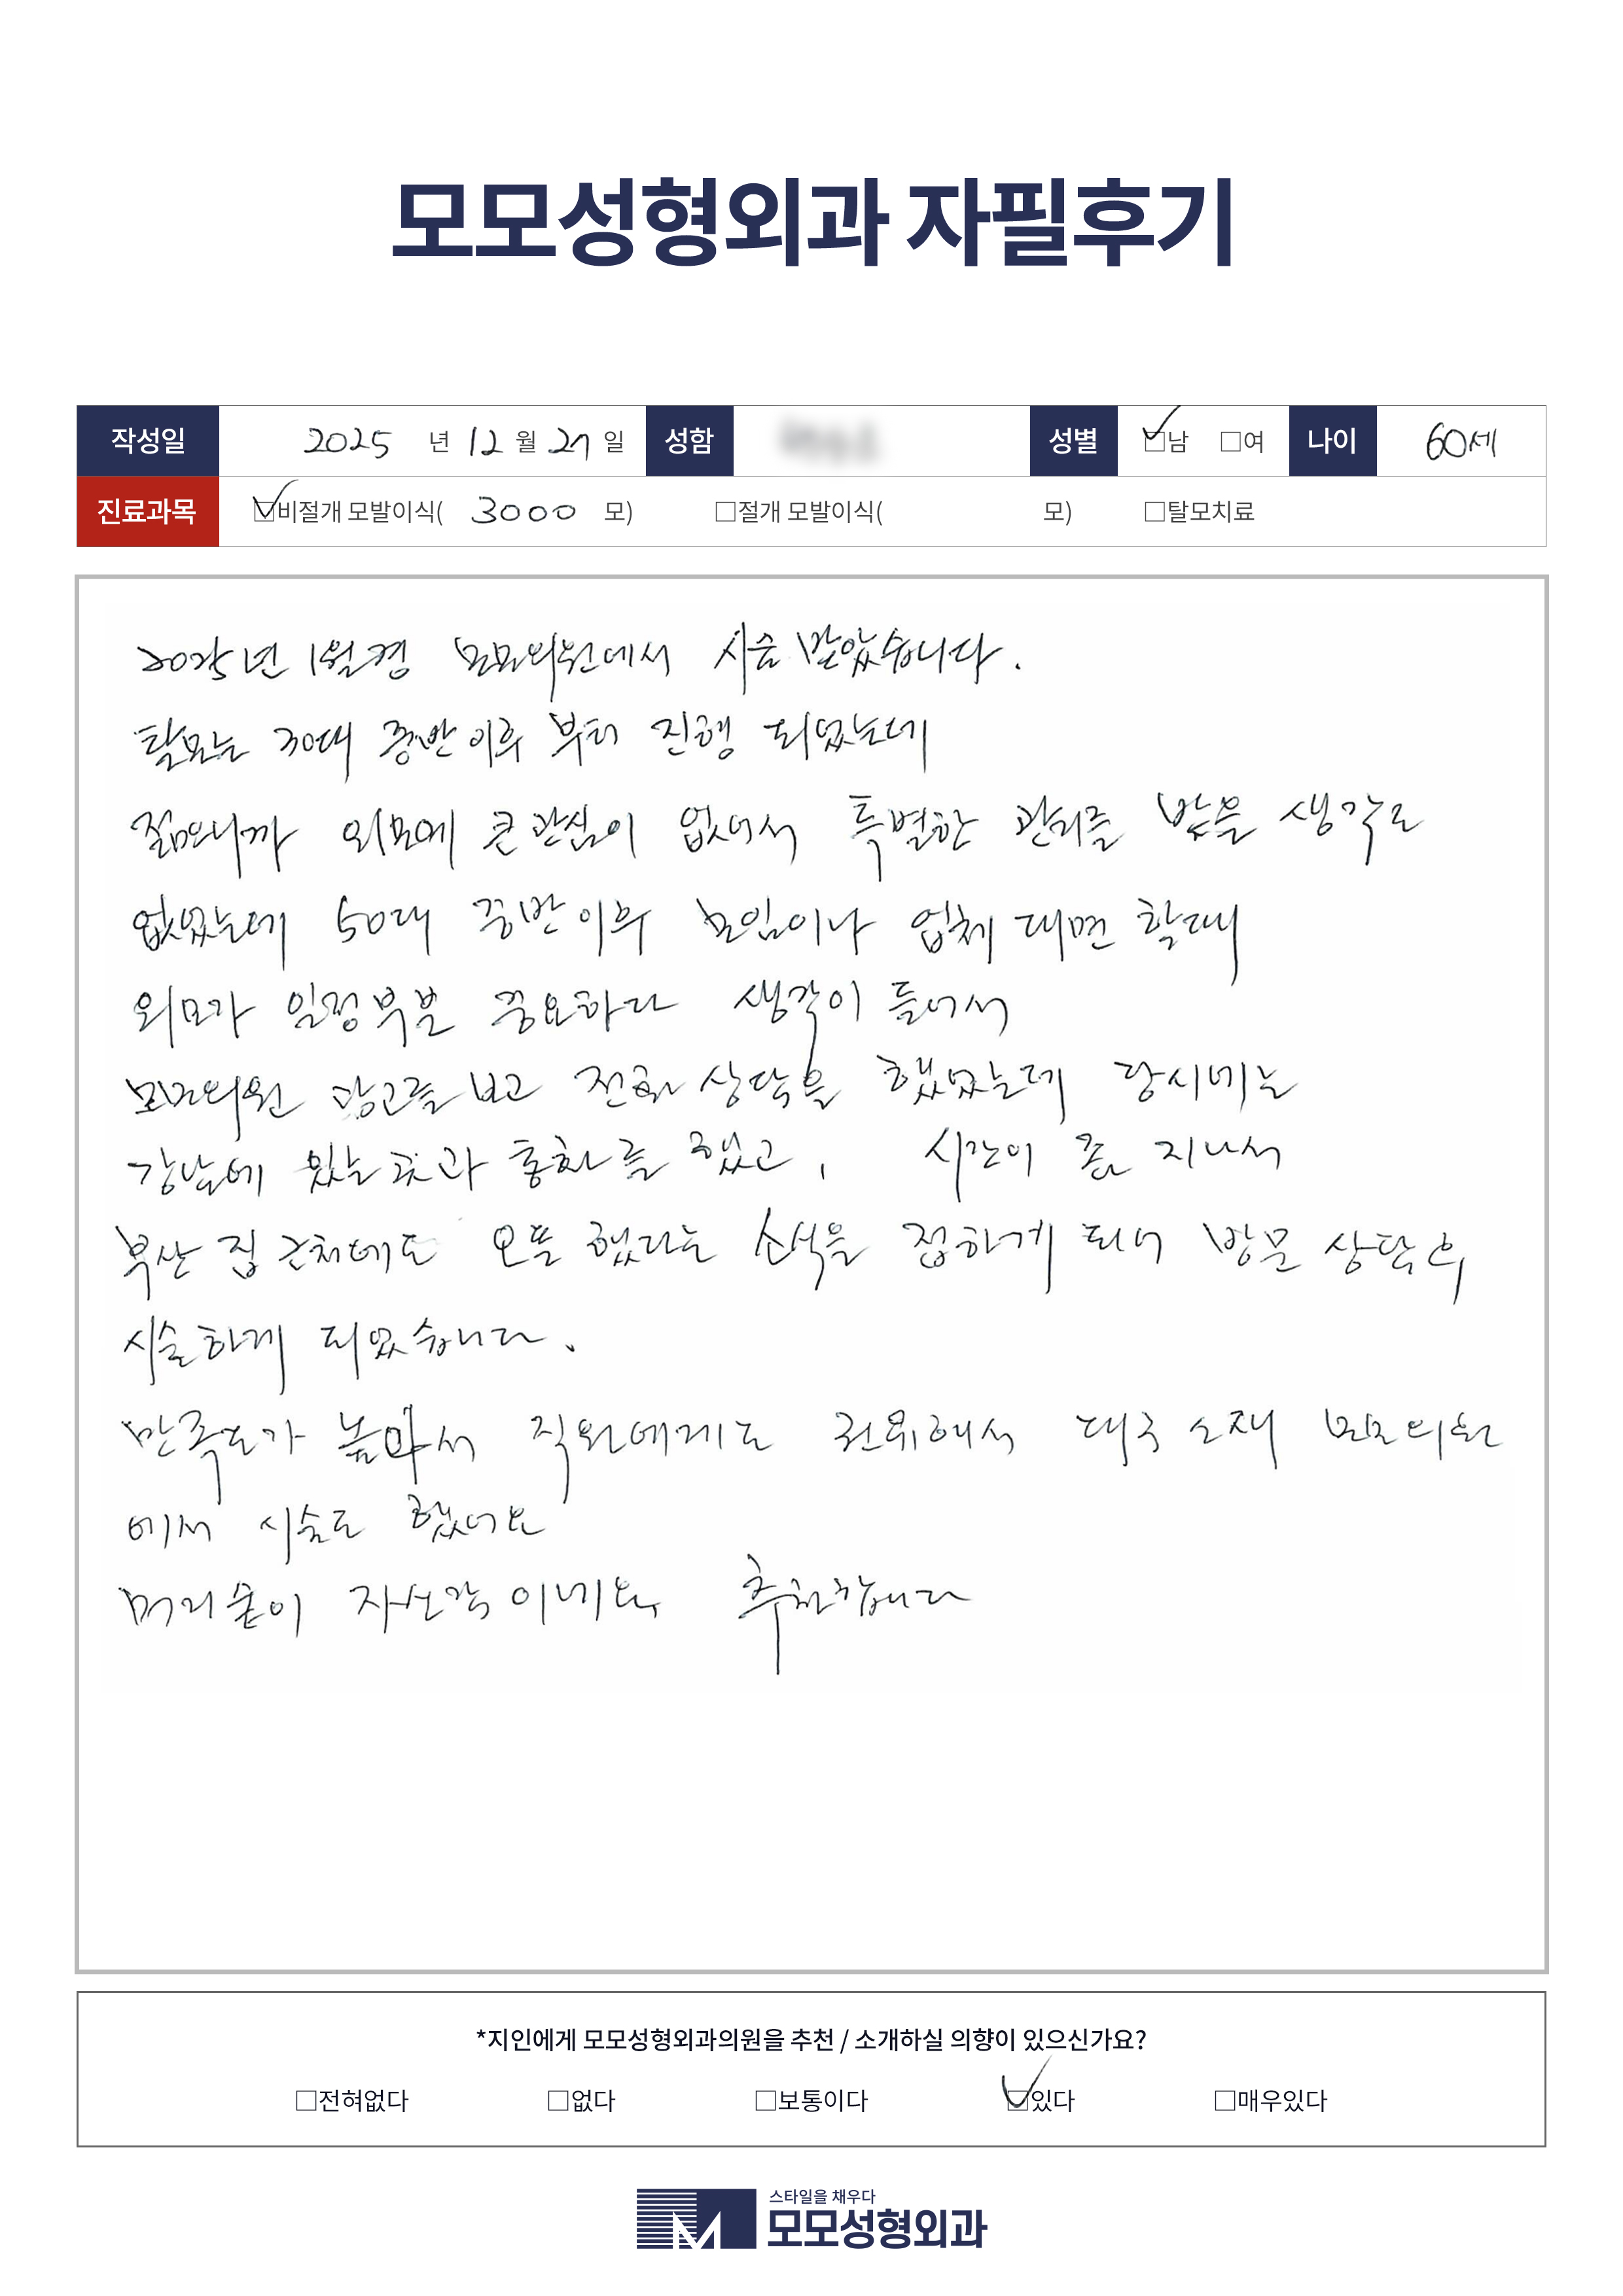 모모성형외과 자필후기
작성일 2025 년 12 월 27 일 성함 성별 □남 □여 나이 60세
진료과목 □비절개 모발이식( 3000 모) □절개 모발이식( 모) □탈모치료
2025년 1월경 모모의원에서 시술 받았습니다.
탈모는 30대 중반이후 부터 진행 되었는데
젊으니까 외모에 큰 관심이 없어서 특별한 관리를 받을 생각도
없었는데 50대 중반이후 모임이나 업체 대면 할때
외모가 일정부분 중요하다 생각이 들어서
모모의원 광고를 보고 전화 상담을 했었는데 당시에는
강남에 있는 곳과 통화를 했고, 시간이 좀 지나서
부산 집 근처에도 오픈 했다는 소식을 접하게 되어 방문 상담후
시술하게 되었습니다.
만족도가 높아서 직원에게도 권유해서 대구 소재 모모의원
에서 시술도 했어요
머리숱이 자신감 이네요 추천합니다
*지인에게 모모성형외과의원을 추천 / 소개하실 의향이 있으신가요?
□전혀없다 □없다 □보통이다 □있다 □매우있다
스타일을 채우다
모모성형외과